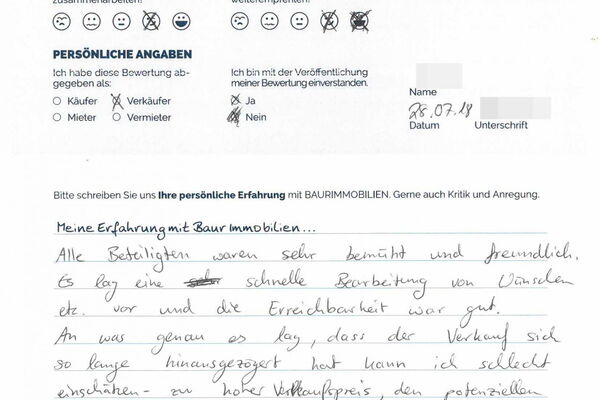 zusammenarbeiten? weiterempfehlen?
PERSÖNLICHE ANGABEN
Ich habe diese Bewertung ab- Ich bin mit der Veröffentlichung
gegeben als: meiner Bewertung einverstanden.
Käufer Verkäufer Ja
Mieter Vermieter Nein
Name
28.07.18
Datum Unterschrift
Bitte schreiben Sie uns Ihre persönliche Erfahrung mit BAURIMMOBILIEN. Gerne auch Kritik und Anregung.
Meine Erfahrung mit Baur Immobilien...
Alle Beteiligten waren sehr bemüht und freundlich.
Es lag eine schnelle Bearbeitung von Wünschen
etc. vor und die Erreichbarkeit war gut.
An was genau es lag, dass der Verkauf sich
so lange hinausgezögert hat kann ich schlecht
einschätzen - zu hoher Verkaufspreis, den potenziellen